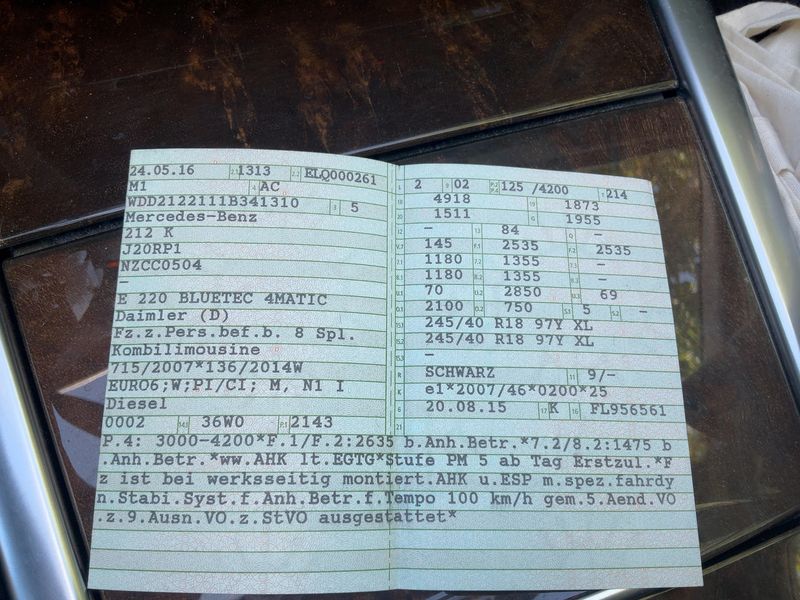 24.05.16 2.1 1313 2.2 ELQ000261
M1 4 AC
WDD2122111B341310 3 5
Mercedes-Benz
212 K
J20RP1
NZCC0504
–
E 220 BLUETEC 4MATIC
Daimler (D)
Fz.z.Pers.bef.b. 8 Spl.
Kombilimousine
715/2007*136/2014W
EURO6;W;PI/CI; M, N1 I
Diesel
0002 14.1 36W0 P.1 2143
L 2 9 02 P.2 P.4 125 /4200 T 214
18 4918 19 1873
20 1511 G 1955
12 – 13 84 Q –
V.7 145 F.1 2535 F.2 2535
7.1 1180 7.2 1355 7.3 –
8.1 1180 8.2 1355 8.3 –
U.1 70 U.2 2850 U.3 69
O.1 2100 O.2 750 S.1 5 S.2 –
15.1 245/40 R18 97Y XL
15.2 245/40 R18 97Y XL
15.3 –
R SCHWARZ 11 9/–
K e1*2007/46*0200*25
6 20.08.15 17 K 16 FL956561
21
P.4: 3000-4200*F.1/F.2:2635 b.Anh.Betr.*7.2/8.2:1475 b
.Anh.Betr.*ww.AHK lt.EGTG*Stufe PM 5 ab Tag Erstzul.*F
z ist bei werksseitig montiert.AHK u.ESP m.spez.fahrdy
n.Stabi.Syst.f.Anh.Betr.f.Tempo 100 km/h gem.5.Aend.VO
.z.9.Ausn.VO.z.StVO ausgestattet*